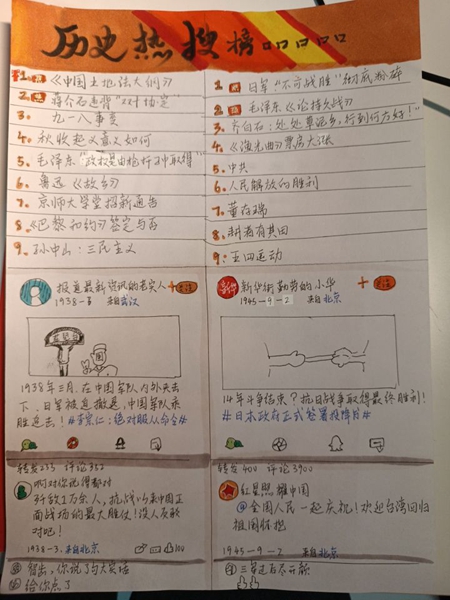 历史热搜榜
1. 《中国土地法大纲》
2. 蒋介石违背"双十协定"
3. 九一八事变
4. 秋收起义意义如何
5. 毛泽东"政权是由枪杆子中取得"
6. 鲁迅《故乡》
7. 京师大学堂招新通告
8. 《巴黎和约》签定与否
9. 孙中山：三民主义
1. 日军"不可战胜"彻底粉碎
2. 毛泽东《论持久战》
3. 齐白石：处处草泥乡，行到何方好！
4. 《渔光曲》票房大涨
5. 中共
6. 人民解放的胜利
7. 董存瑞
8. 耕者有其田
9. 五四运动
报道最新资讯的老实人
+关注
1938-3 来自武汉
1938年三月，在中国军队内外夹击
下，日军被迫撤退，中国军队乘
胜追击！#李宗仁：绝对服从命令#
转发233 评论352
啊对你说得都对
歼敌1万余人，抗战以来中国正
面战场的最大胜仗！没人反驳
对吧！
1938-3. 来自北京
100
智出，你说了句大实话
给你点了
新华
新华网勤劳的小华
+关注
1945-9-2 来自北京
14年斗争结束？抗日战争取得最终胜利！
#日本政府正式签署投降书#
转发400 评论3900
红星照耀中国
@全国人民 一起庆祝！欢迎台湾回归
祖国怀抱
1945-9-2 来自北京